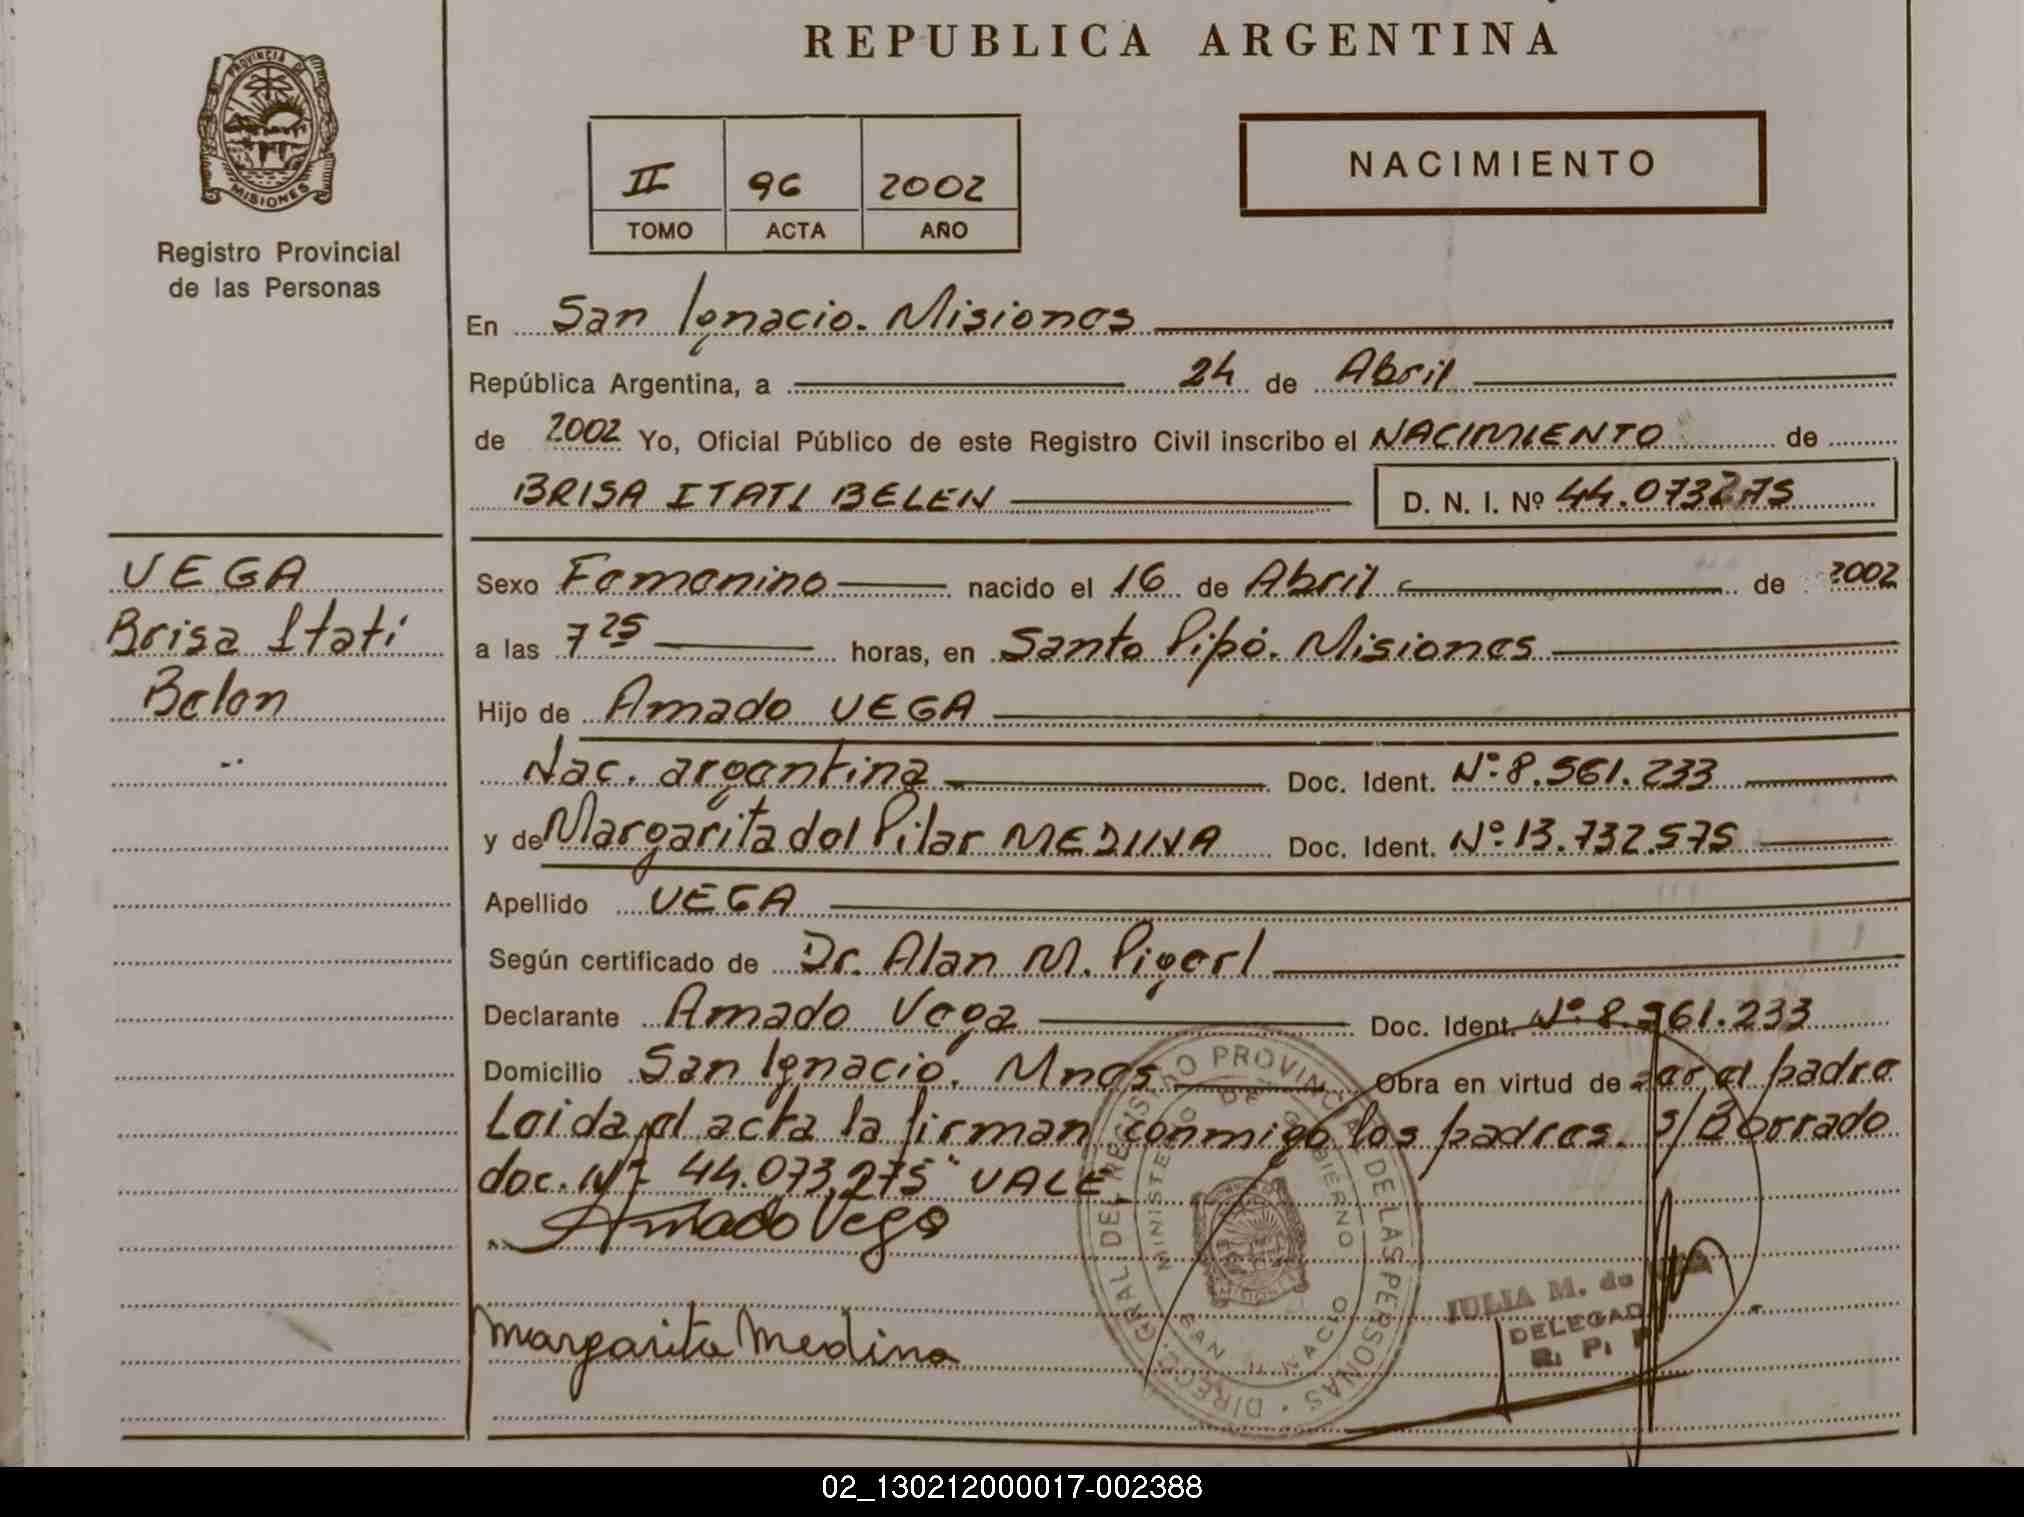 REPUBLICA ARGENTINA
PROVINCIA DE
MISIONES
Registro Provincial
de las Personas
II 96 2002
TOMO ACTA AÑO
NACIMIENTO
En San Ignacio. Misiones
República Argentina, a 24 de Abril
de 2002 Yo, Oficial Público de este Registro Civil inscribo el NACIMIENTO de
BRISA ITATI BELEN D. N. I. Nº 44.073275
VEGA
Brisa Itatí
Belen
Sexo Femenino nacido el 16 de Abril de 2002
a las 7 25 horas, en Santo Pipó. Misiones
Hijo de Amado VEGA
Nac. argentina Doc. Ident. Nº 8.561.233
y de Margarita del Pilar MEDINA Doc. Ident. Nº 13.732.575
Apellido VEGA
Según certificado de Dr. Alan M. Pigerl
Declarante Amado Vega Doc. Ident. Nº 8.561.233
Domicilio San Ignacio. Mnes Obra en virtud de ser el padre
Leida el acta la firman conmigo los padres. S/Borrado
doc. Nº 44.073.275" VALE.
Amado Vega
Margarita Medina
DIREC. GRAL. DEL REGISTRO PROVINCIAL DE LAS PERSONAS
MINISTERIO DE GOBIERNO
SAN IGNACIO
JULIA M. de
R. P. P
02_130212000017-002388